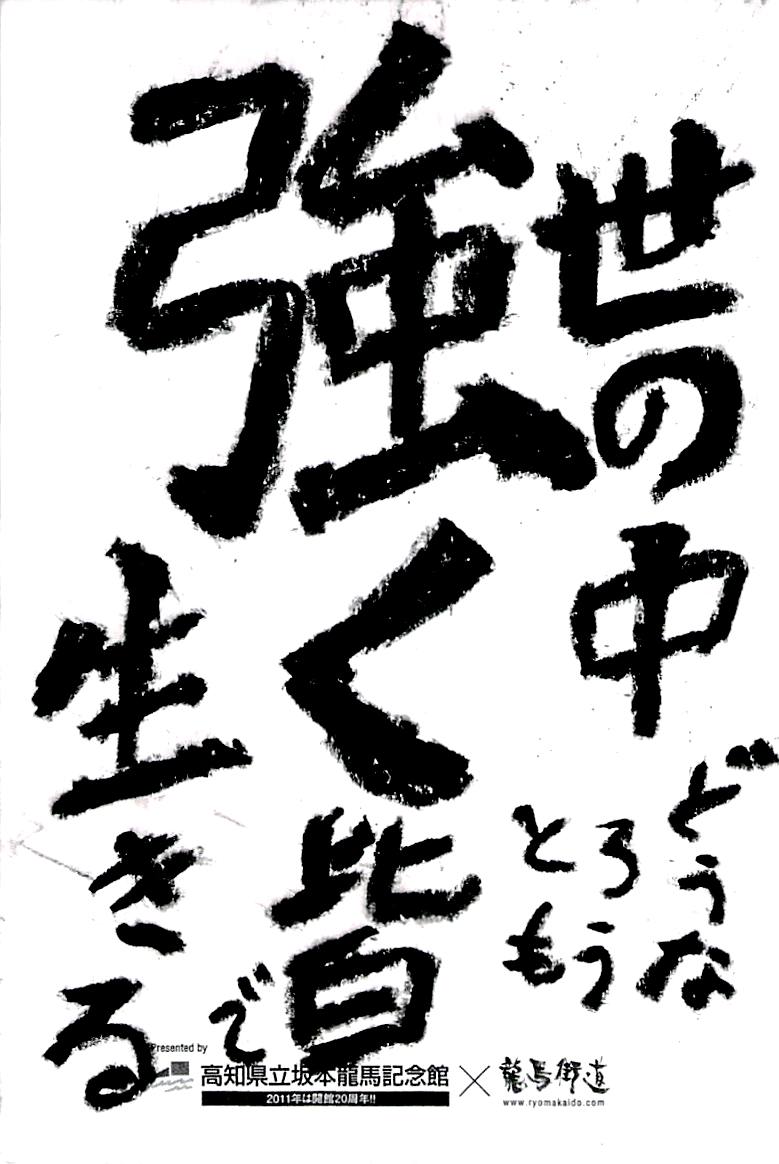 世の中
どうな
ろう
とも
強く皆で
生きる
Presented by
高知県立坂本龍馬記念館
2011年は開館20周年!!
×
龍馬街道
www.ryomakaido.com